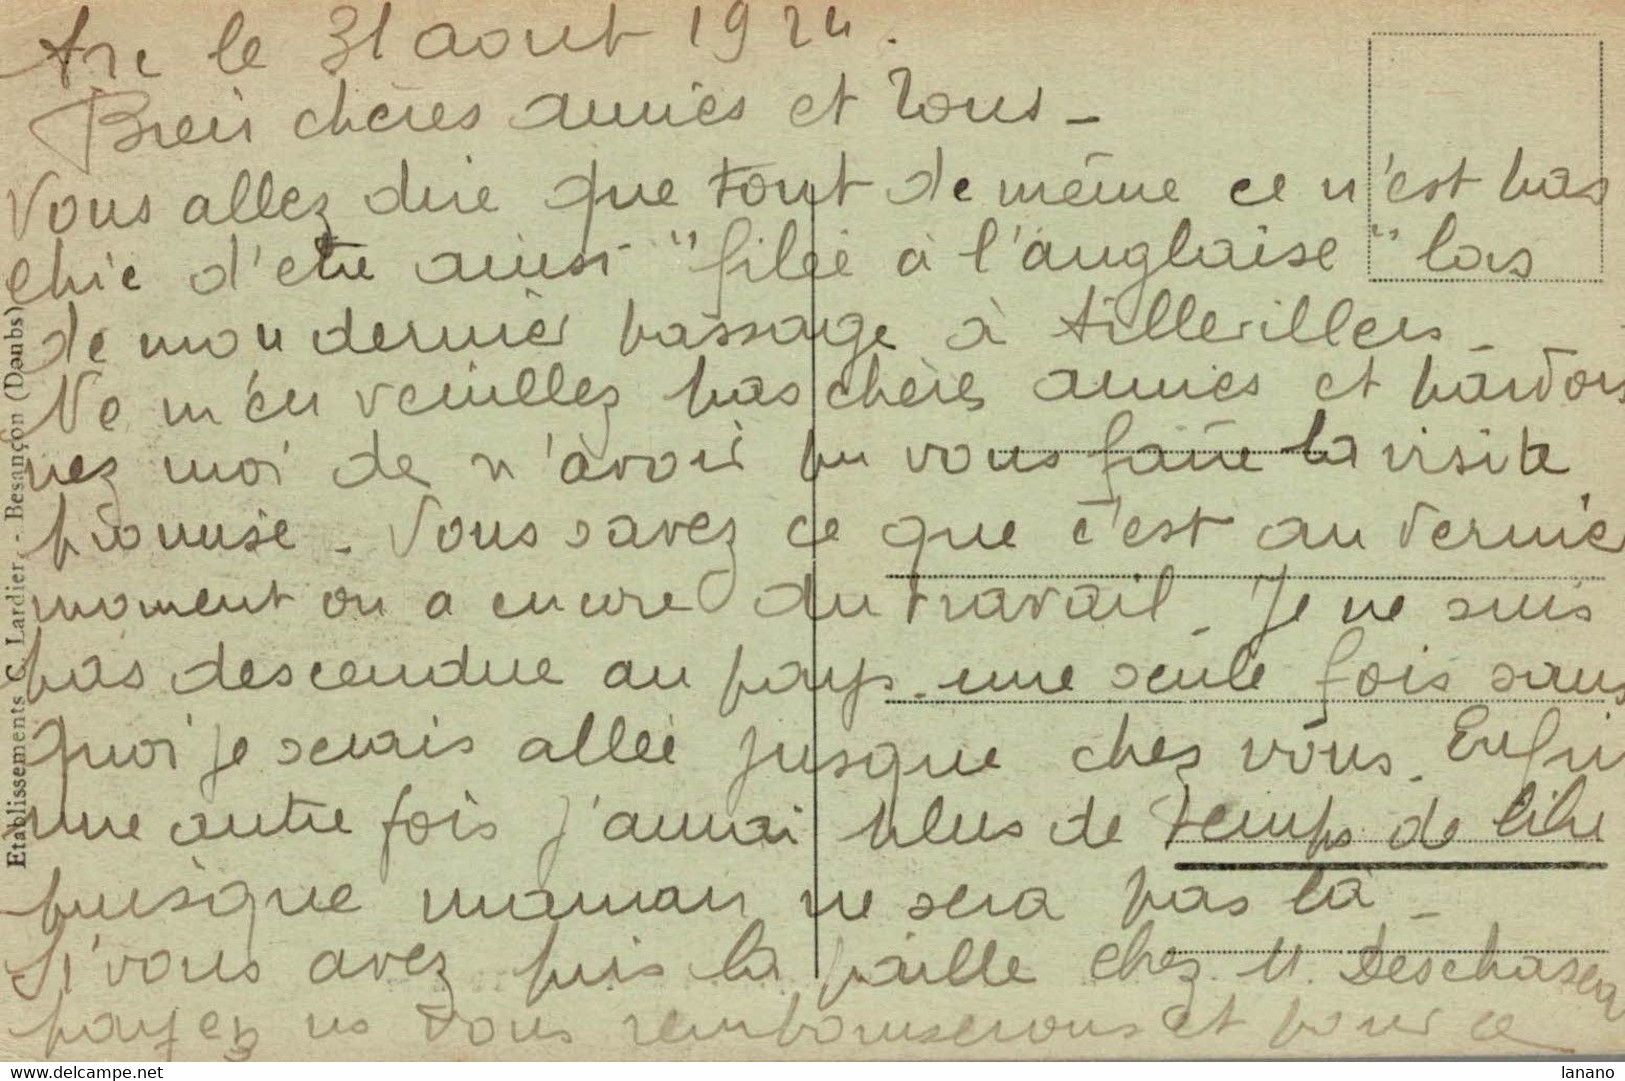 Arc le 31 aout 1924.
Bien chères amies et tous -
Vous allez dire que tout de même ce n'est pas
chic d'être ainsi "filée à l'anglaise" lors
de mon dernier passage à
Ne m'en veuillez pas chères amies et pardon
nez moi de n'avoir pu vous faire la visite
promise. Vous savez ce que c'est au dernier
moment on a encore du travail. Je ne suis
pas descendue au pays une seule fois sans
quoi je serais allée jusque chez vous. Enfin
une autre fois j'aurai plus de temps de libre
puisque maman ne sera pas là -
Si vous avez pris la paille chez M.
payez ns vous rembourserons et pour ce
Etablissements C. Lardier, - Besançon (Doubs)
https://www.delcampe.net
lanano